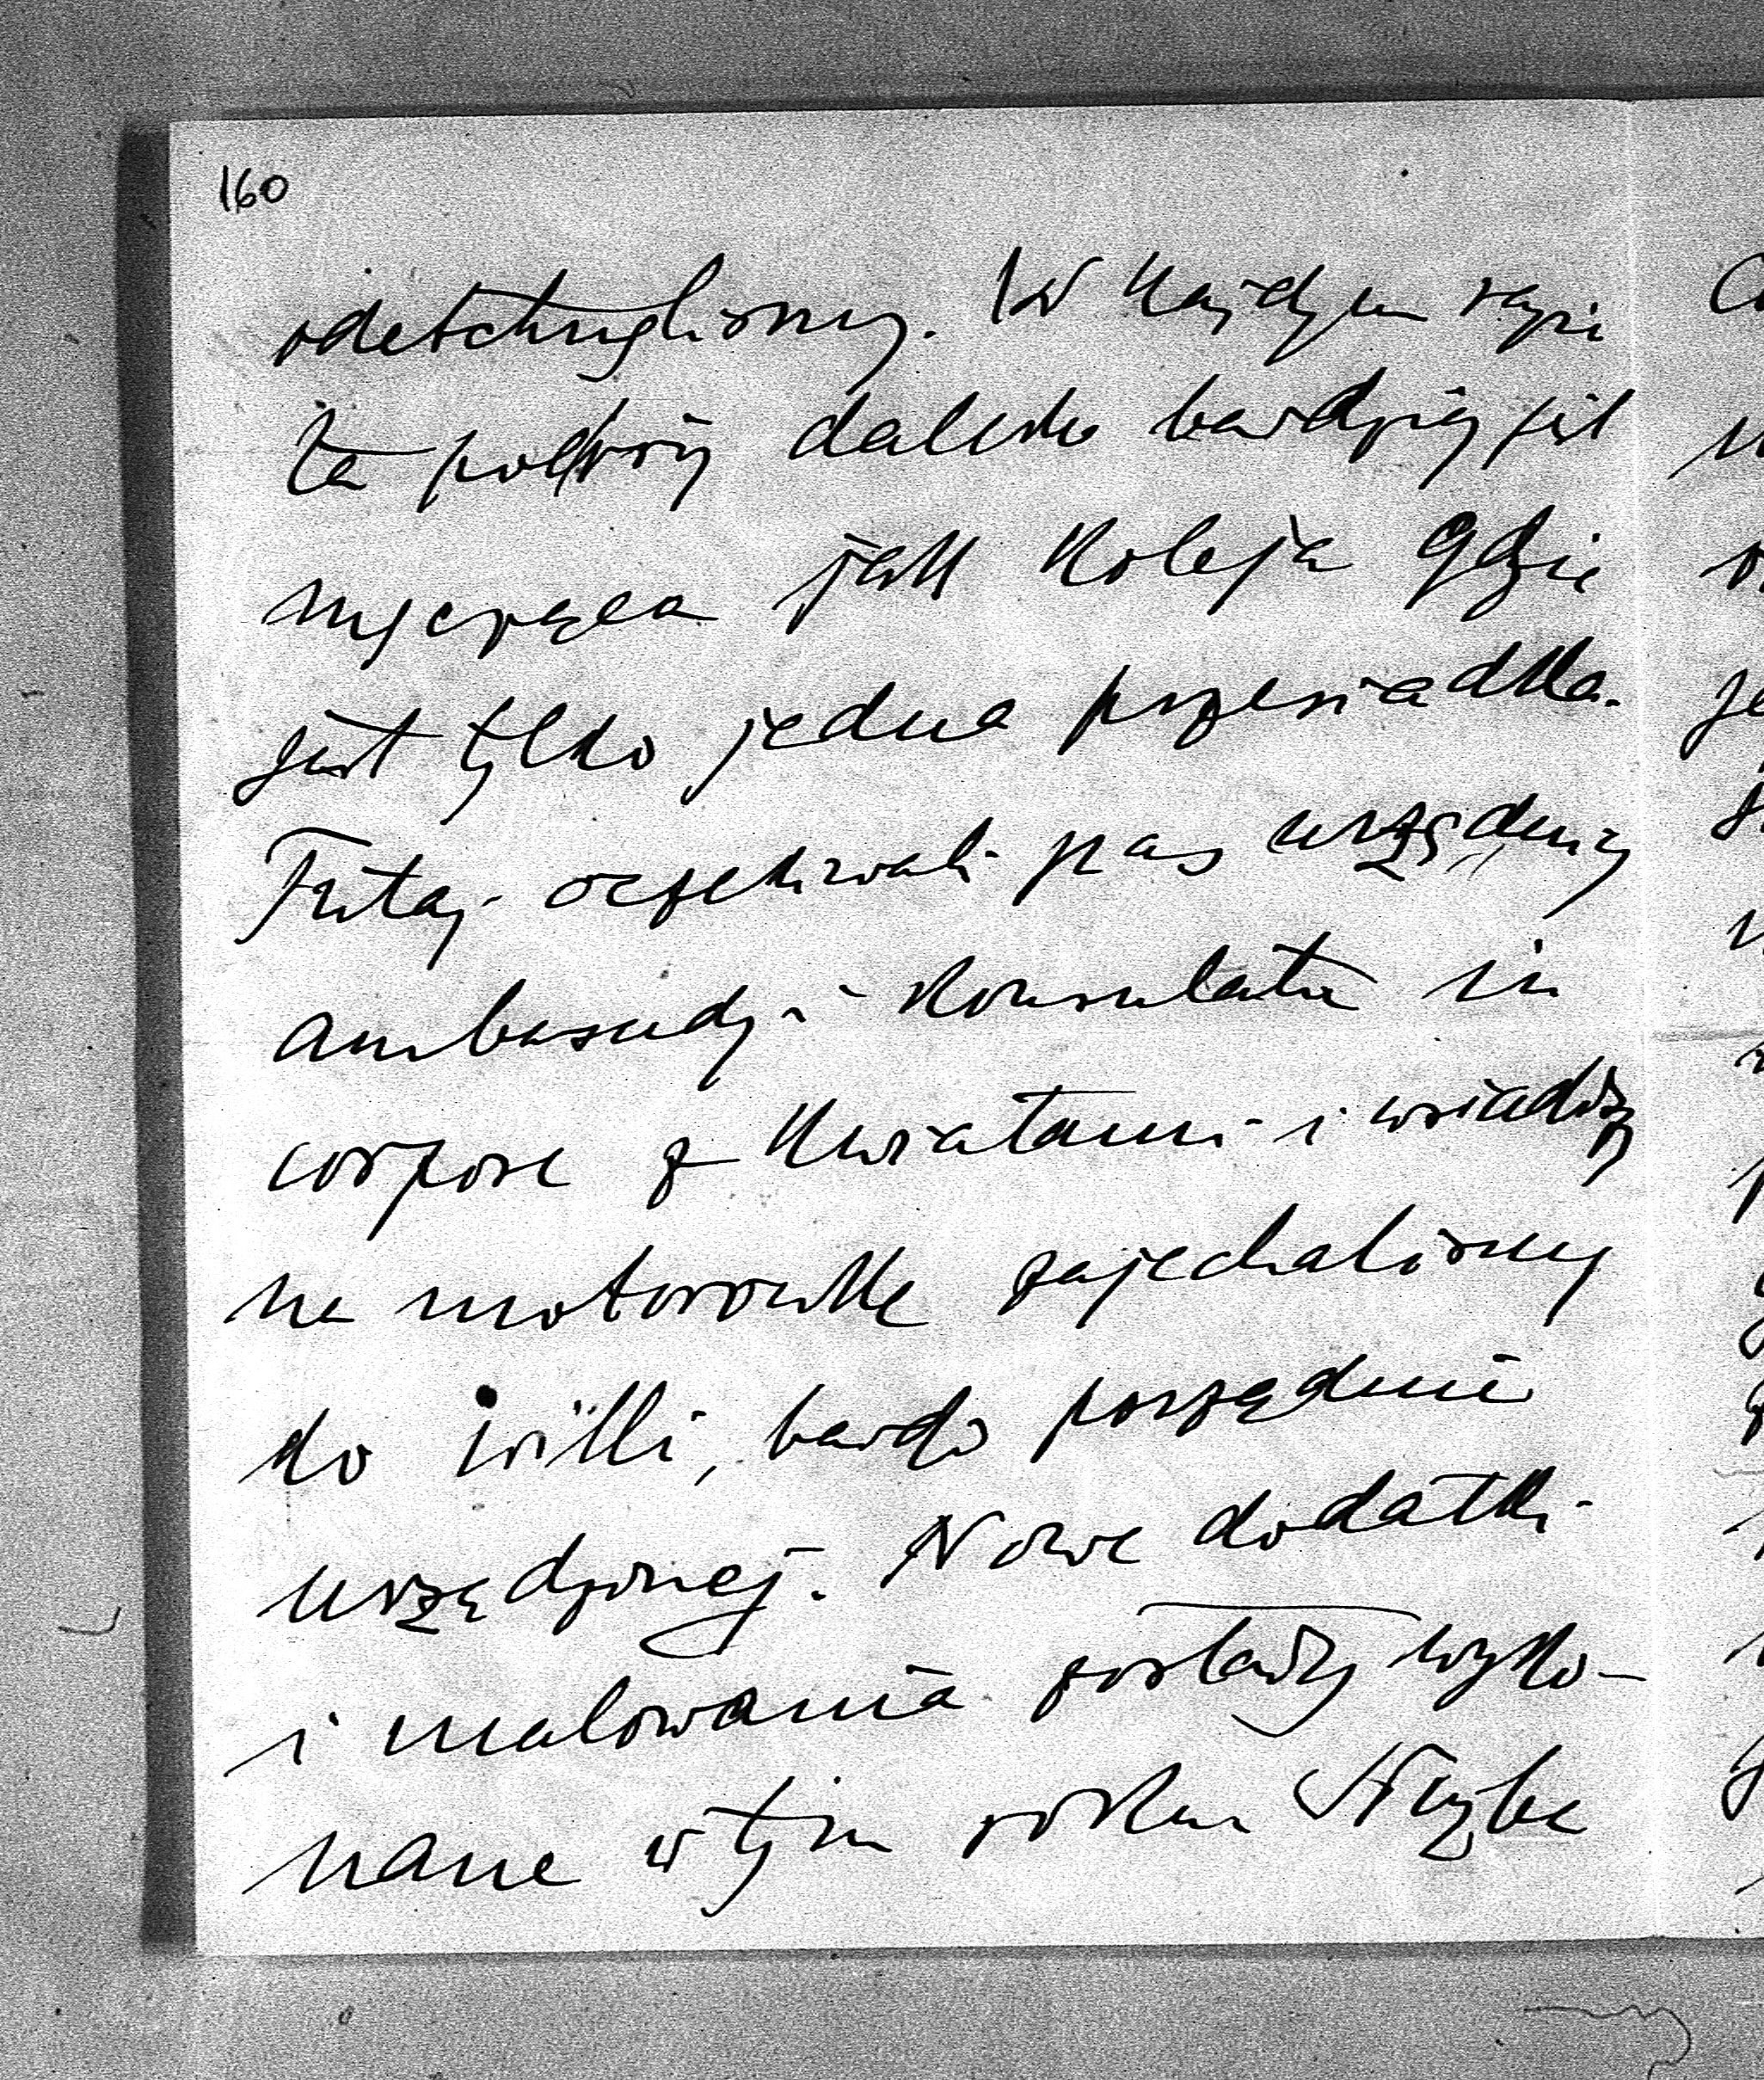 160
odetchnęliśmy. W każdym razie
ta podróż daleko bardziej jest
męcząca jak koleją gdzie
jest tylko jedna przesiadka.
Tutaj oczekiwali nas urzędnicy
ambasady i konsulatu in
corpore z kwiatami i wsiadłszy
na motorówkę zajechaliśmy
do willi, bardzo porządnie
urządzonej. Nowe dodatki
i malowania zostały wyko-
nane w tym roku